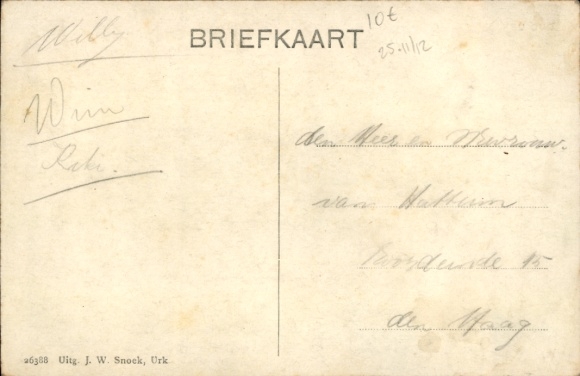 Willy
BRIEFKAART
10€
25-11/12
Wim
den Heer en Mevrouw
van Hattum
Noordeinde 15
den Haag
26388 Uitg. J. W. Snoek, Urk